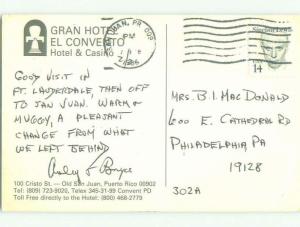 GRAN HOTEL
EL CONVENTO
Hotel & Casino
PM
1986
Sinclair Lewis
14
GOOD VISIT IN
FT. LAUDERDALE, THEN OFF
TO SAN JUAN. WARM &
MUGGY, A PLEASANT
CHANGE FROM WHAT
WE LEFT BEHIND
MRS. B. I. MAC DONALD
600 E. CATHEDRAL RD
PHILADELPHIA PA
19128
302A
100 Cristo St. — Old San Juan, Puerto Rico 00902
Tel: (809) 723-9020, Telex 345-31-99 Convent PD
Toll Free directly to the Hotel: (800) 468-2779